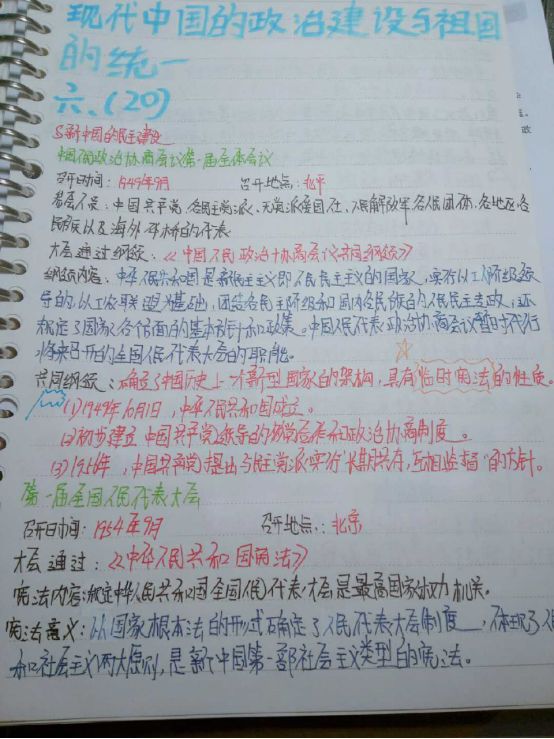 现代中国的政治建设与祖国
的统一
六、(20)
新中国的民主建设
中国人民政治协商会议第一届全体会议
召开时间：1949年9月 召开地点：北平
参会人员：中国共产党、各民主党派、无党派人士、人民解放军、各人民团体、各地区、各
民族以及海外华侨的代表
大会通过纲领：《中国人民政治协商会议共同纲领》
纲领内容：中华人民共和国是新民主主义即人民民主主义的国家，实行以工人阶级领
导的，以工农联盟为基础，团结各民主阶级和国内各民族的人民民主专政，还
规定了国家各个方面的基本方针和政策。中国人民代表政治协商会议暂时代行
将来召开的全国人民代表大会的职能。
共同纲领：确立了中国历史上一个新型国家的架构，具有临时宪法的性质。
(1)1949年10月1日，中华人民共和国成立。
(2)初步建立中国共产党领导的多党合作和政治协商制度。
(3)1956年，中国共产党提出与民主党派实行“长期共存，互相监督”的方针。
第一届全国人民代表大会
召开时间：1954年9月 召开地点：北京
大会通过：《中华人民共和国宪法》
宪法内容：规定中华人民共和国全国人民代表大会是最高国家权力机关。
宪法意义：以国家根本法的形式确定了人民代表大会制度，体现了人
和社会主义两大原则，是新中国第一部社会主义类型的宪法。